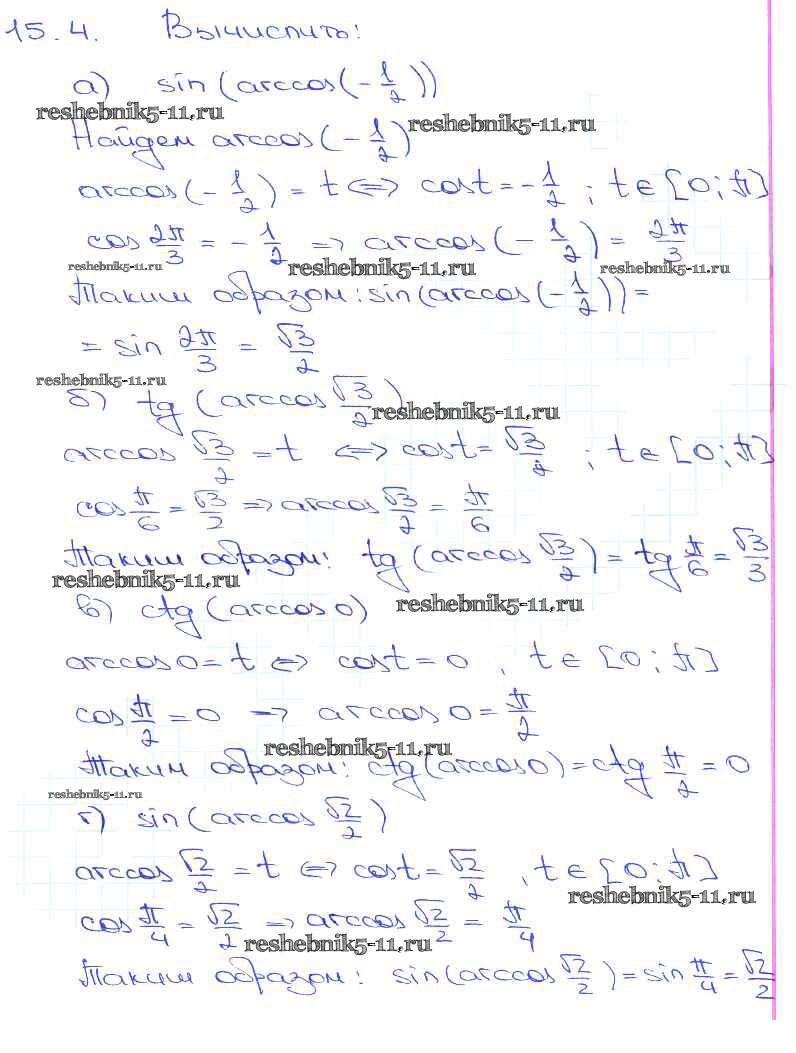 15.4. Вычислить:
а) sin(arccos(-1/2))
reshebnik5-11.ru reshebnik5-11.ru
Найдем arccos(-1/2)
arccos(-1/2) = t <=> cost = -1/2 ; t ∈ [0; π]
cos 2π/3 = -1/2 => arccos(-1/2) = 2π/3
reshebnik5-11.ru reshebnik5-11.ru reshebnik5-11.ru
Таким образом: sin(arccos(-1/2)) =
= sin 2π/3 = √3/2
reshebnik5-11.ru
б) tg(arccos √3/2)
reshebnik5-11.ru
arccos √3/2 = t <=> cost = √3/2 ; t ∈ [0; π]
cos π/6 = √3/2 => arccos √3/2 = π/6
Таким образом: tg(arccos √3/2) = tg π/6 = √3/3
reshebnik5-11.ru reshebnik5-11.ru
в) ctg(arccos 0)
arccos 0 = t <=> cost = 0 , t ∈ [0; π]
cos π/2 = 0 => arccos 0 = π/2
reshebnik5-11.ru
Таким образом: ctg(arccos 0) = ctg π/2 = 0
reshebnik5-11.ru
г) sin(arccos √2/2)
arccos √2/2 = t <=> cost = √2/2 , t ∈ [0; π]
reshebnik5-11.ru
cos π/4 = √2/2 => arccos √2/2 = π/4
reshebnik5-11.ru
Таким образом: sin(arccos √2/2) = sin π/4 = √2/2